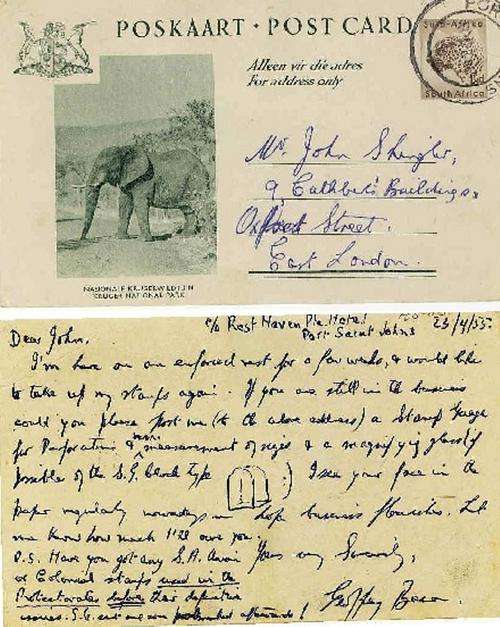 POSKAART · POST CARD
Alleen vir die adres
For address only
South Africa
Mr John Shingler,
9 Cuthbert's Buildings,
Oxford Street.
East London.
NASIONALE KRUGERWILDTUIN
KRUGER NATIONAL PARK
c/o Rest Haven Pte Hotel
Port Saint Johns 23/4/55
Dear John,
I'm here on an enforced rest for a few weeks, & would like
to take up my stamps again. If you are still in the business
could you please post me (to the above address) a Stamp Gauge
for Perforation & mm measurement of sizes & a magnifying glass if
possible of the S.G. block type I see your face in the
paper regularly nowadays hope business flourishes. Let
me know how much I'll owe you.
P.S. Have you got any S.A. Yours very Sincerely,
or Colonial stamps used in the
Protectorates before their definitive
issues. S.G. set
Geoffrey